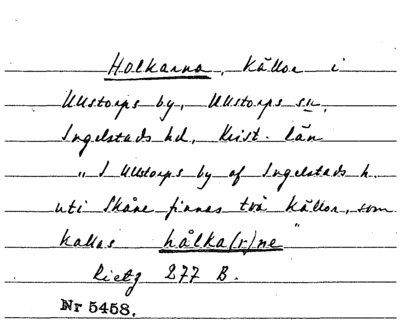 Holkarna, Källor i
Ullstorps by, Ullstorps sn,
Ingelstads hd, Krist. län
"I Ullstorps by af Ingelstads h.
uti Skåne finnas två källor, som
kallas hålka(r)ne"
Rietz 277 B.
Nr 5458.